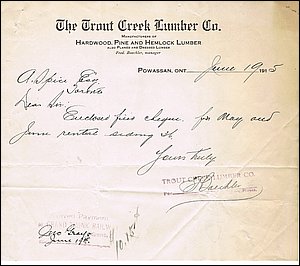 The Trout Creek Lumber Co.
MANUFACTURERS OF
HARDWOOD, PINE AND HEMLOCK LUMBER
ALSO PLANED AND DRESSED LUMBER
Fred. Boeckler, manager
POWASSAN, ONT June 19, 1915
A. Spice Esq
Toronto
Dear Sir,
Enclosed find cheque for May and
June rental siding
Yours truly
TROUT CREEK LUMBER CO.
Received Payment
GRAND TRUNK
June 19
10.18